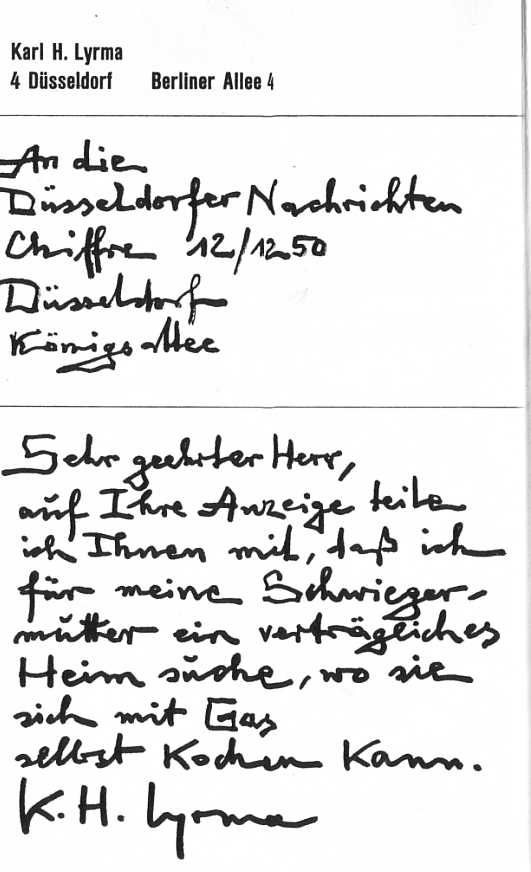 Karl H. Lyrma
4 Düsseldorf Berliner Allee 4
An die
Düsseldorfer Nachrichten
Chiffre 12/1250
Düsseldorf
Königsallee
Sehr geehrter Herr,
auf Ihre Anzeige teile
ich Ihnen mit, daß ich
für meine Schwieger-
mutter ein verträgliches
Heim suche, wo sie
sich mit Gas
selbst kochen kann.
K. H. Lyrma